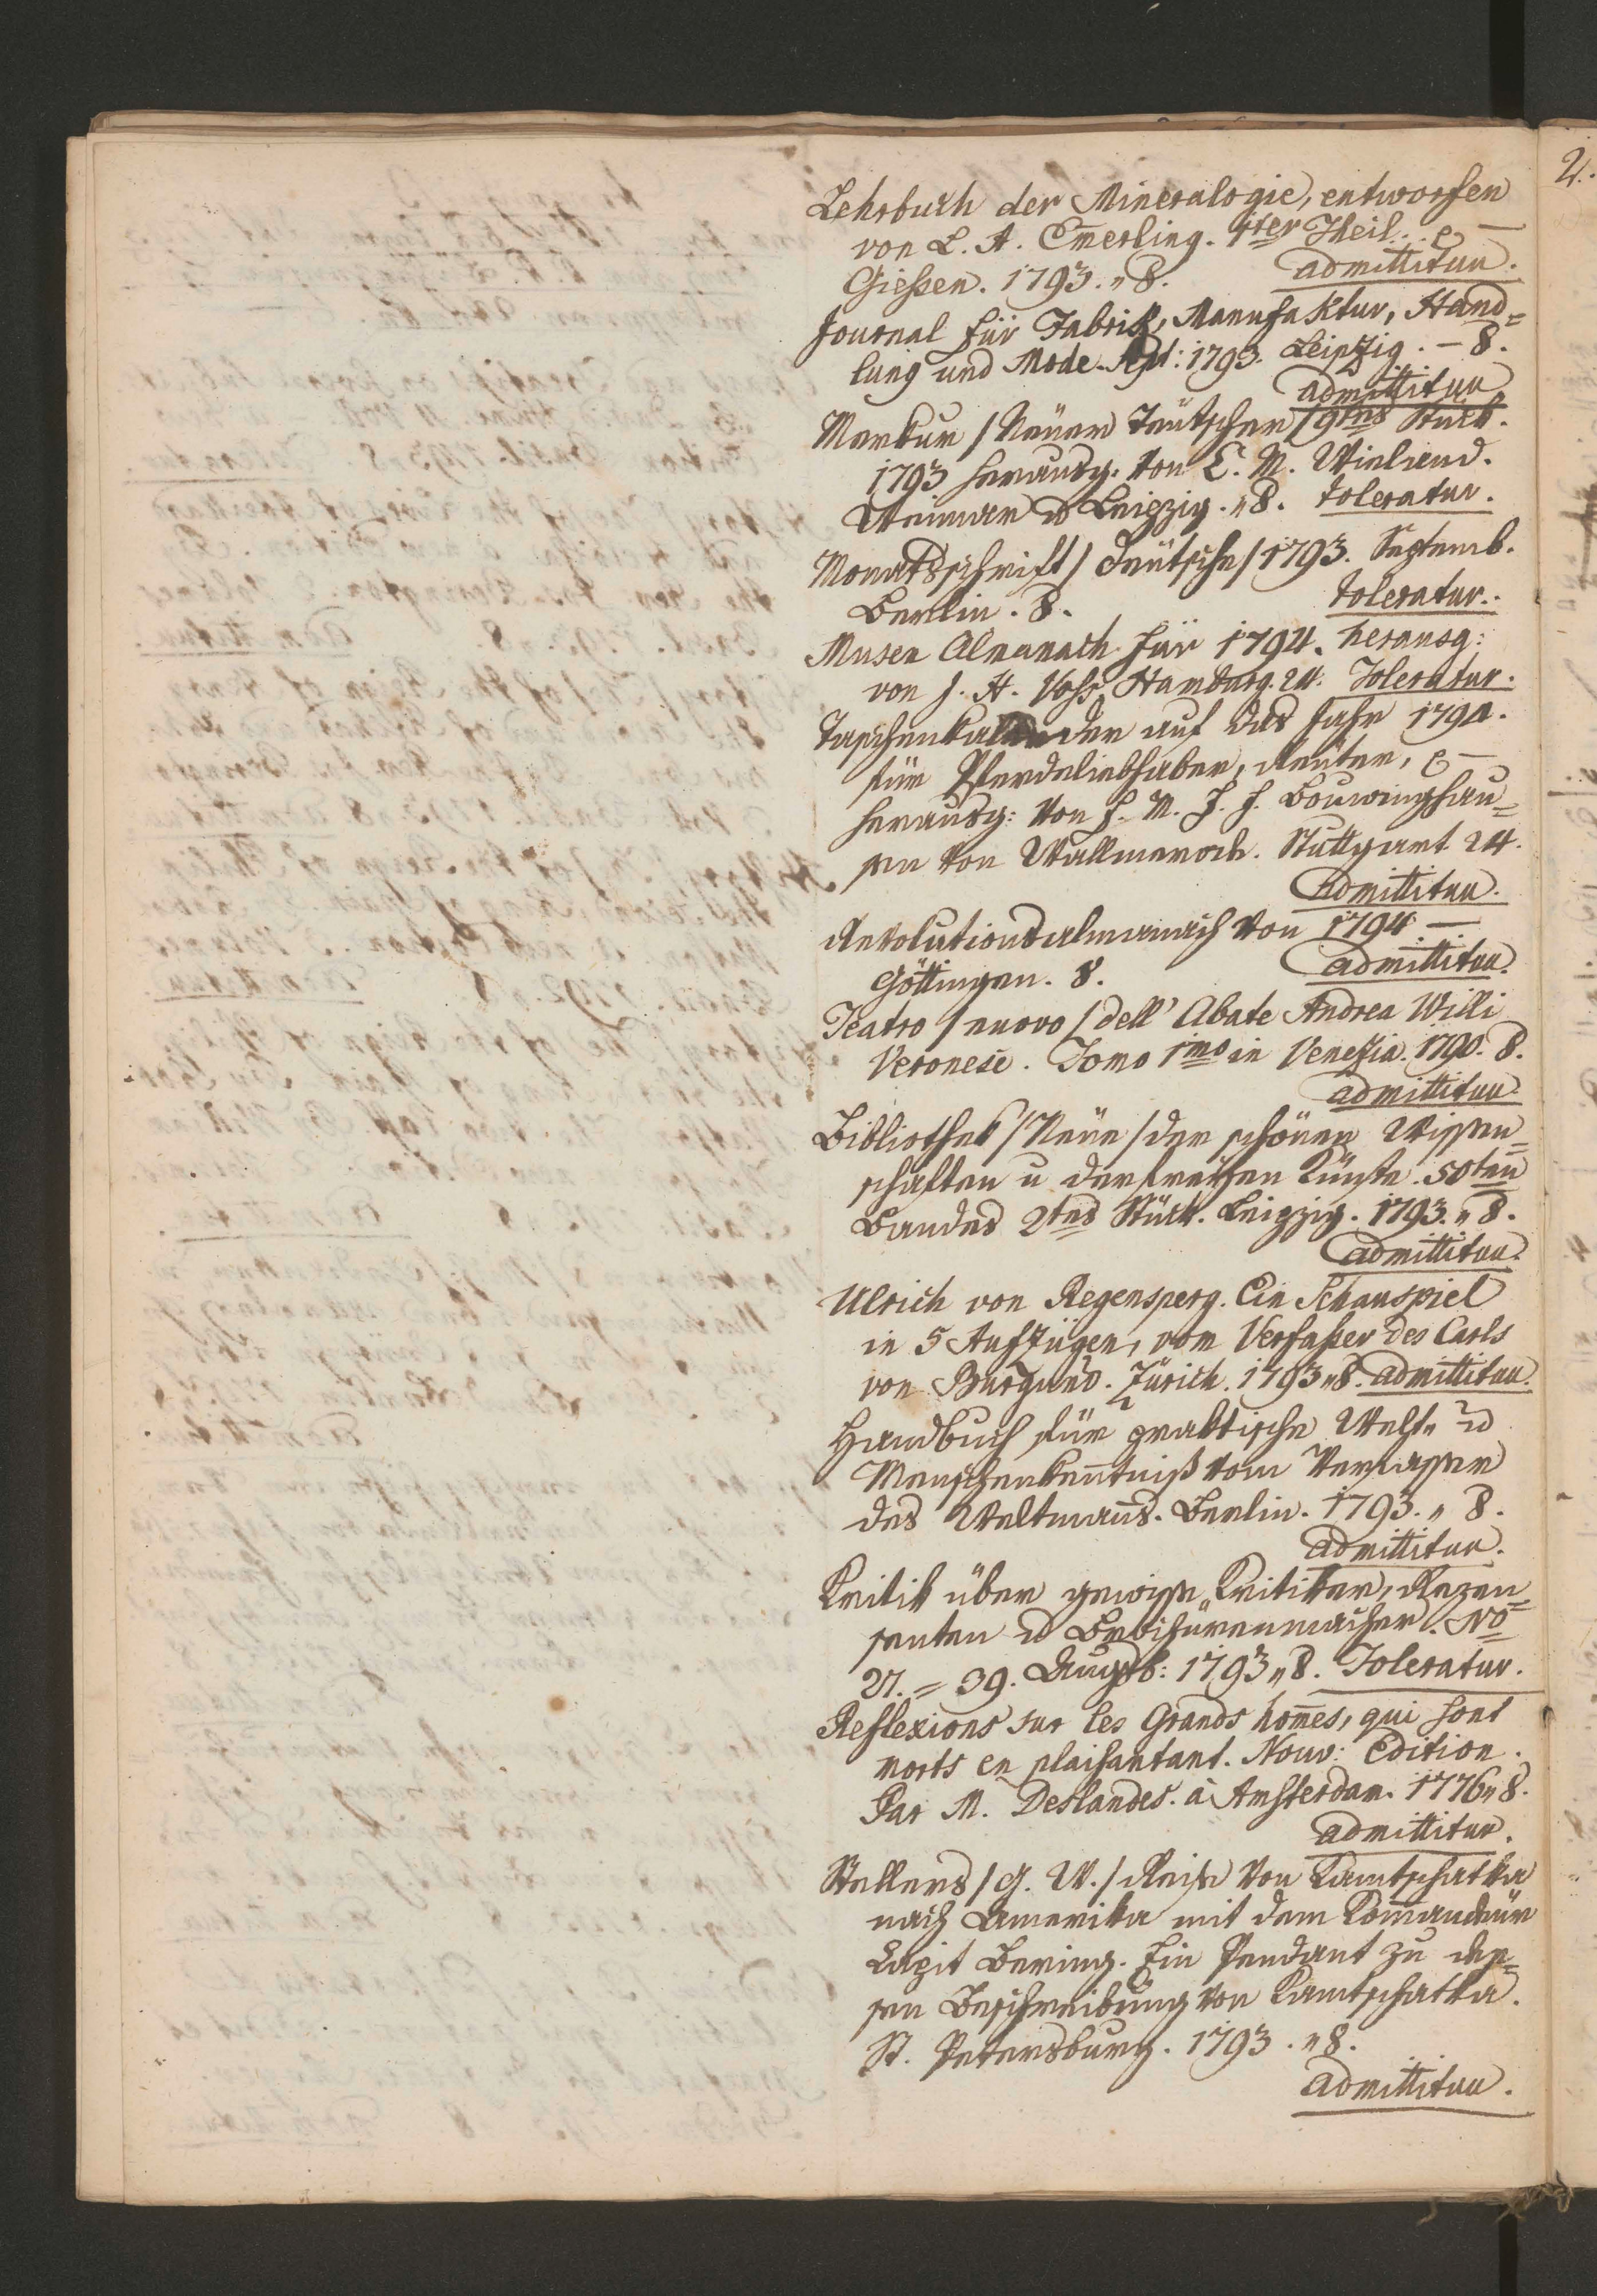 Lehrbuch der Mineralogie, entworfen
von L. A. Em̅erling. 1ter Theil. &—
Gießen. 1793. „ 8. admittitur.
Journal für Fabrik, Manufaktur, Hand=
lung und Mode. Sept: 1793. Leipzig. – 8.
admittitur
Merkur / Neuer Teütscher / 9tes Stück.
1793 herausg. von C. M. Wieland.
Weimar u Leipzig. „ 8. toleratur.
Monatsschrift / Deütsche / 1793. Septemb.
Berlin. 8. toleratur.
Musen Almanach für 1794. herausg:
von J. H. Voß, Hamburg. 24. Toleratur.
Taschenkalender auf das Jahr 1794.
für Pferdeliebhaber, Reuter, &—
herausg: von F. M. F. F. Bouwinghau=
sen von Wallmerode. Stuttgart 24.
admittitur.
Revolutionsalmanach von 1794 —
Göttingen. 8. admittitur.
Teatro / nuovo / dell' Abate Andrea Willi
Veronese. Tomo 1mo in Venezia. 1790. 8.
admittitur.
Bibliothek / Neue / der schönen Wissen=
schaften u der freyen Künste. 50ten
Bandes 2tes Stück. Leipzig. 1793. „ 8.
admittitur.
Ulrich von Regensperg. Ein Schauspiel
in 5 Aufzügen, vom Verfaßer des Carls
von Burgund. Zürich. 1793 „ 8. admittitur.
Handbuch für praktische Welt- u
Menschenken̅tniß vom Verfasser
des Weltman̅s. Berlin. 1793. „ 8.
admittitur.
Kritik über gewisse Kritiker, Rezen=
senten u Brochürenmacher. No
27. = 39. Augsb: 1793 „ 8. Toleratur.
Reflexions sur les Grands hom̅es, qui sont
morts en plaisantant. Nouv: Edition.
Par M. Deslandes. à Amsterdam. 1776 „ 8.
admittitur.
Stellers / G. W. / Reise von Kamtschatka
nach Amerika mit dem Kom̅andeür
Capit Bering. Ein Pendant zu des=
sen Beschreibung von Kamtschatka.
St. Petersburg. 1793. „ 8.
admittitur.
2.